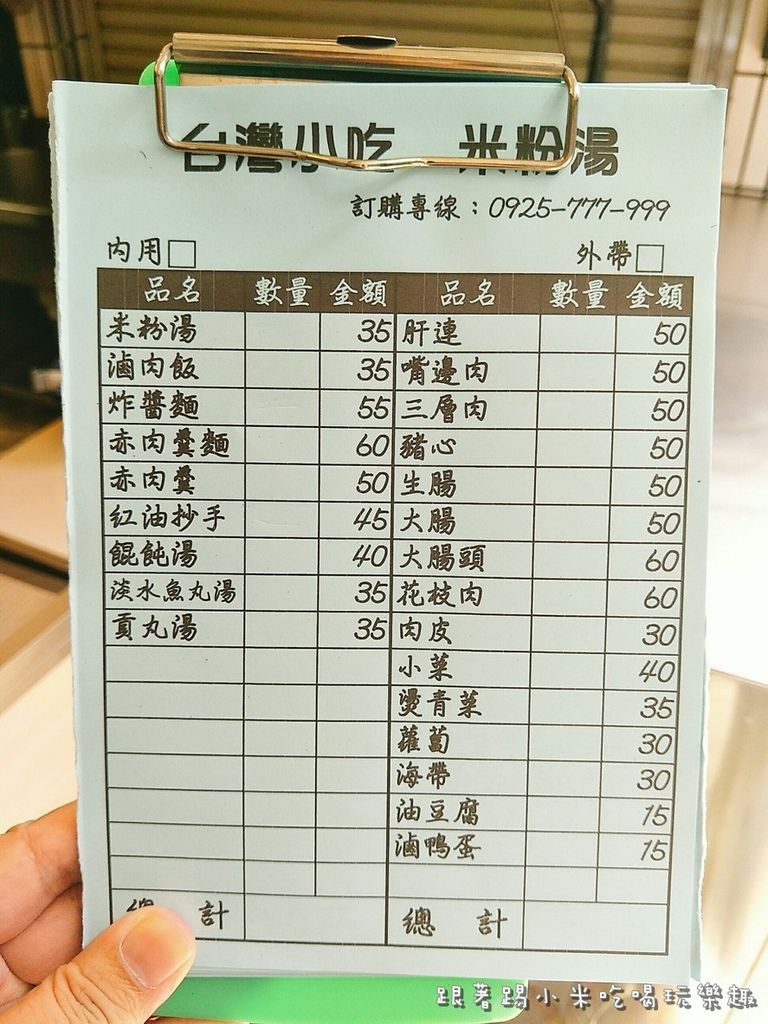 台灣小吃 米粉湯
訂購專線：0925-777-999
內用□ 外帶□
品名 數量 金額 品名 數量 金額
米粉湯 35 肝連 50
滷肉飯 35 嘴邊肉 50
炸醬麵 55 三層肉 50
赤肉羹麵 60 豬心 50
赤肉羹 50 生腸 50
紅油抄手 45 大腸 50
餛飩湯 40 大腸頭 60
淡水魚丸湯 35 花枝肉 60
貢丸湯 35 肉皮 30
小菜 40
燙青菜 35
蘿蔔 30
海帶 30
油豆腐 15
滷鴨蛋 15
總計 總計
跟著踢小米吃喝玩樂趣